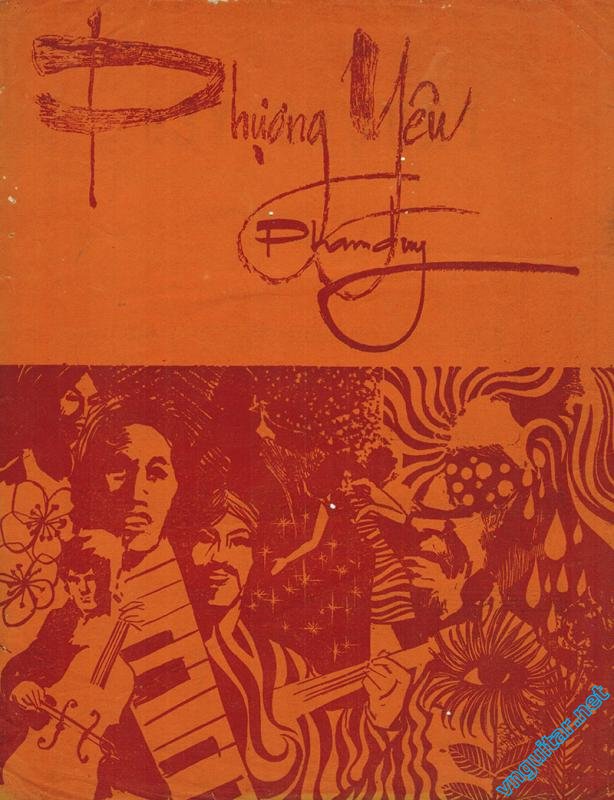 Phượng Yêu
Phạm duy
vnguitar.net